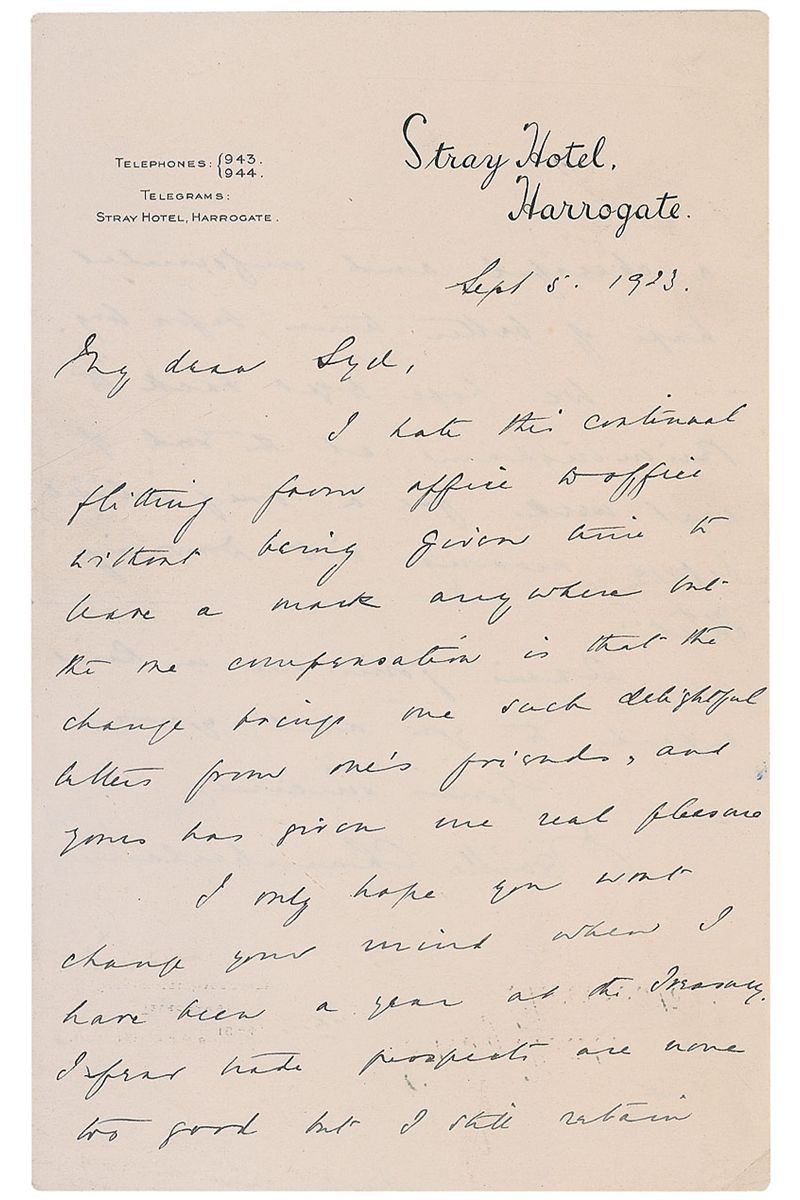 TELEPHONES: {943.
944.
TELEGRAMS:
STRAY HOTEL, HARROGATE.
Stray Hotel,
Harrogate.
Sept 5. 1923.
My dear Syd,
I hate this continual
flitting from office to office
without being given time to
leave a mark anywhere but
the one compensation is that the
change brings one such delightful
letters from one's friends, and
yours has given me real pleasure
I only hope you wont
change your mind when I
have been a year at the Treasury.
I fear trade prospects are none
too good but I still retain